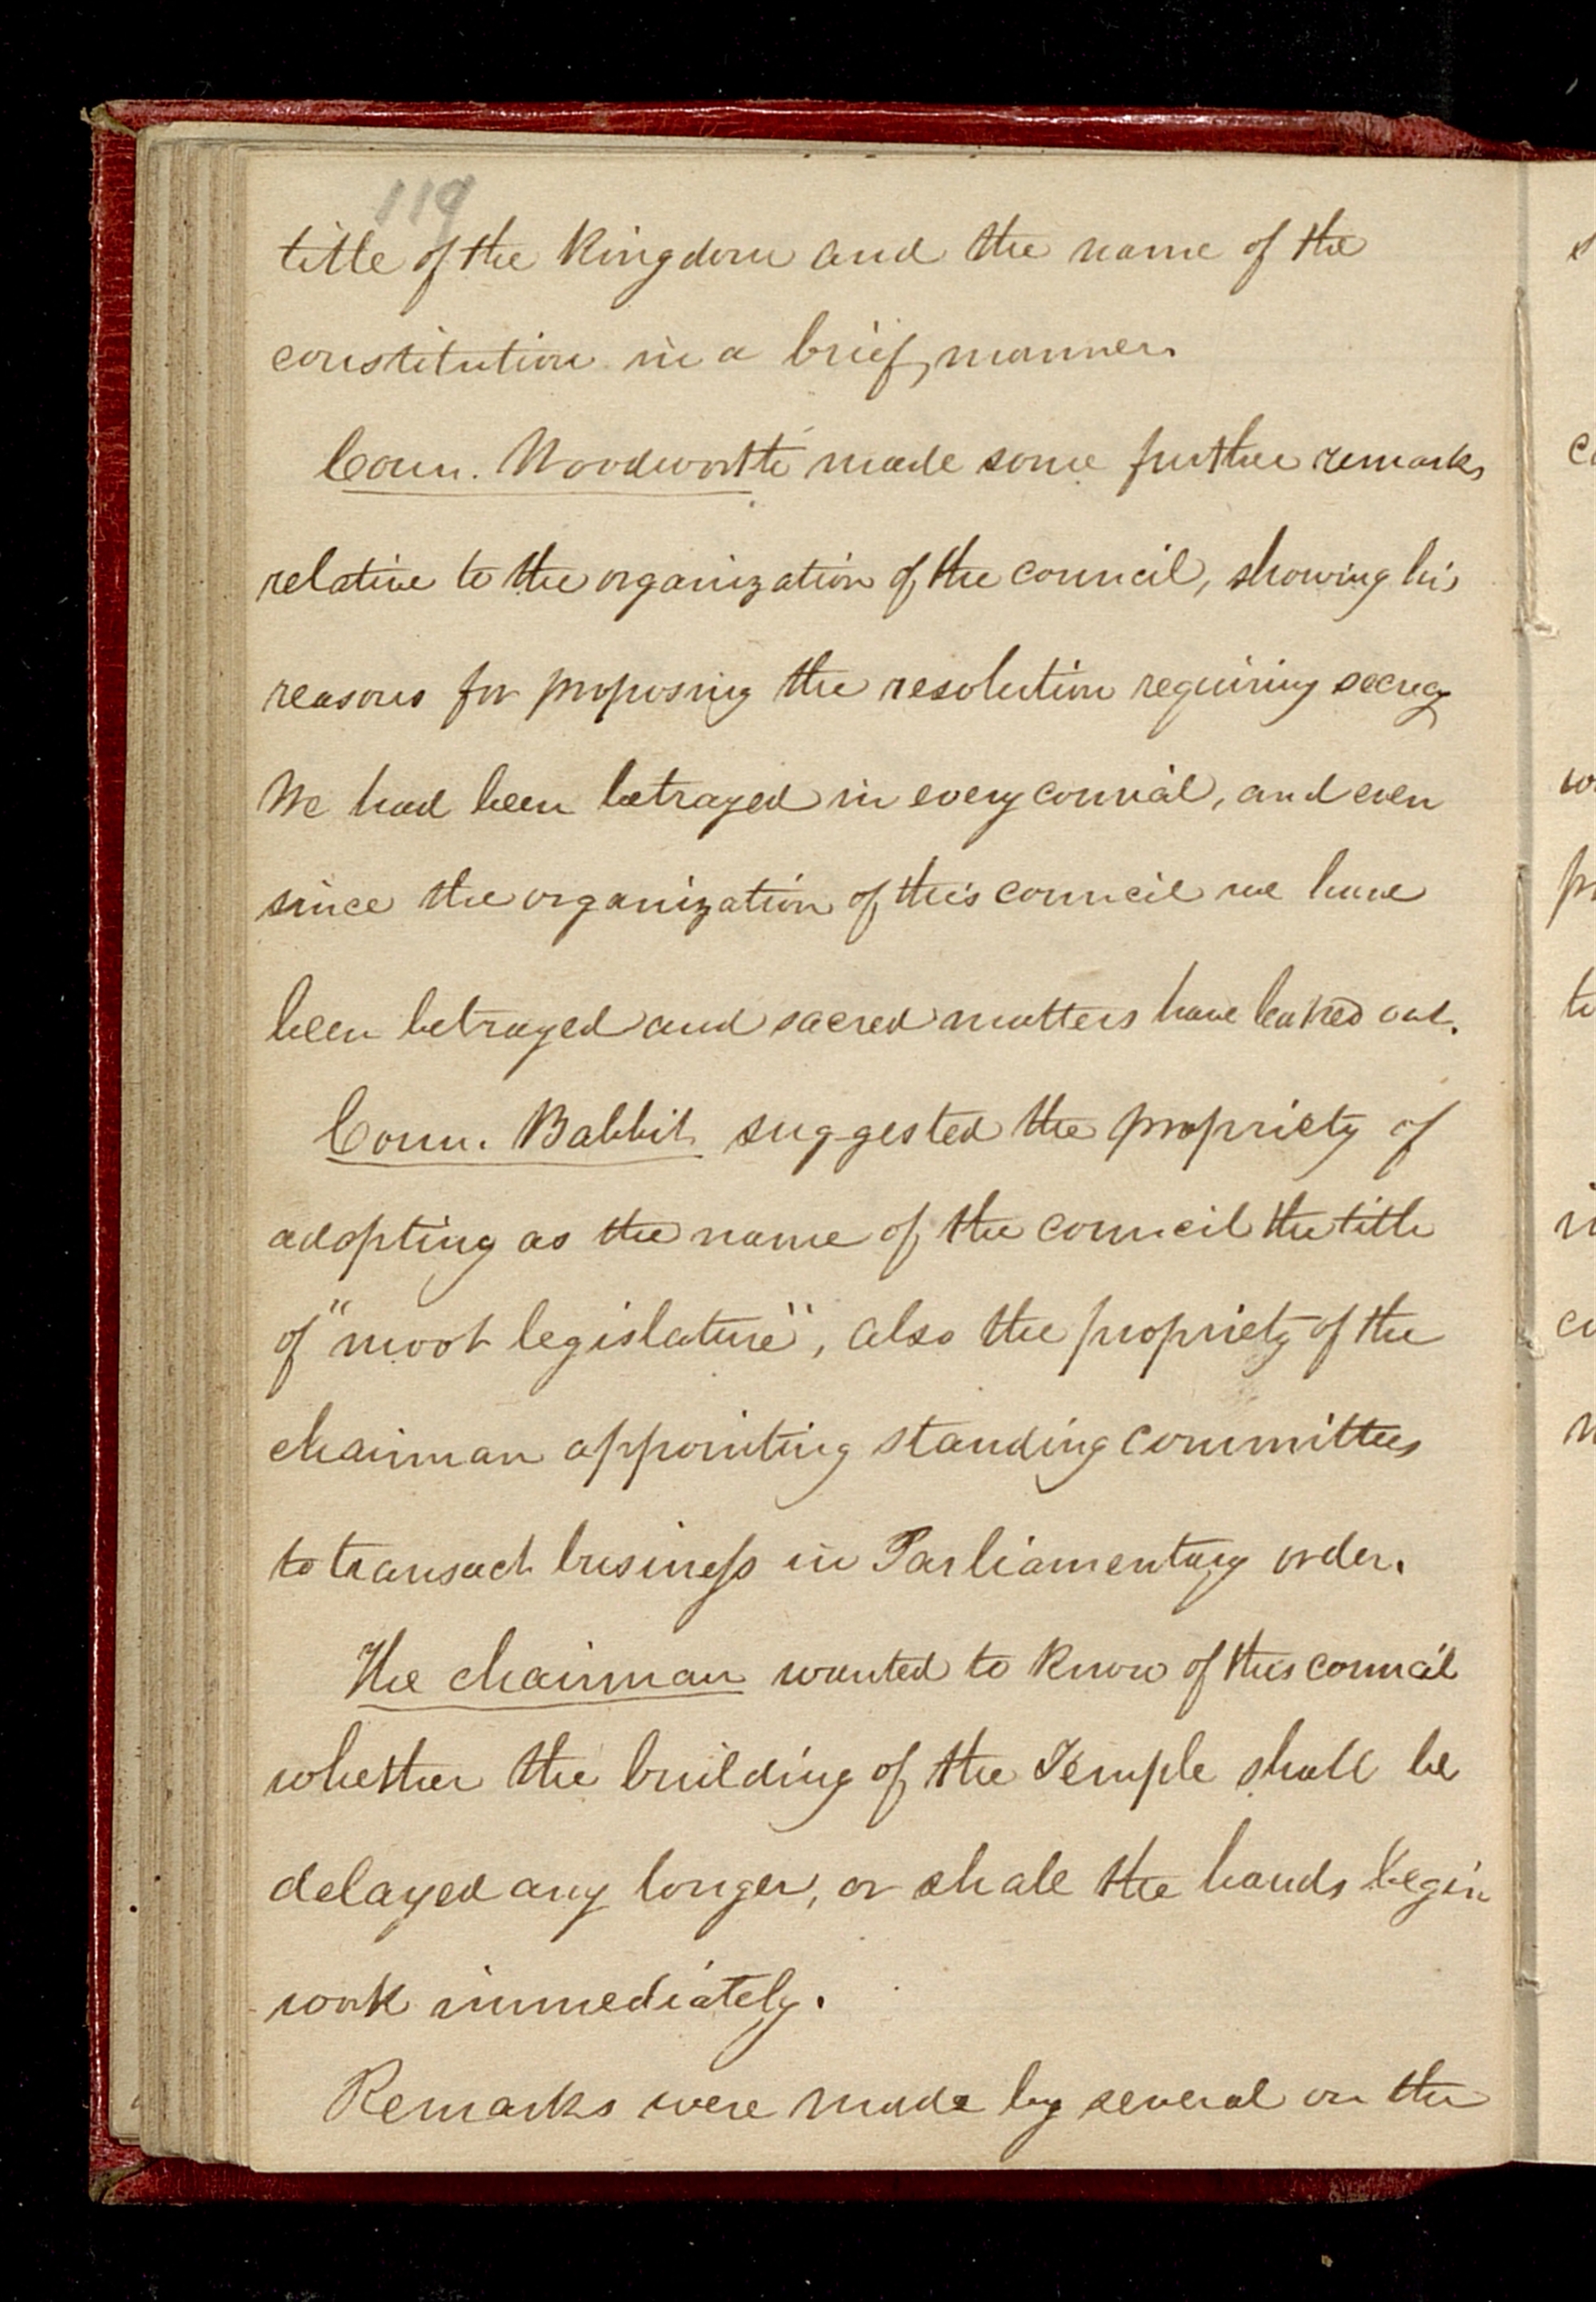 119
title of the Kingdom and the name of the
constitution in a brief manner.
Coun. Woodworth made some further remarks
relative to the organization of the council, showing his
reasons for proposing the resolution requiring secrecy
We had been betrayed in every council, and even
since the organization of this council we have
been betrayed and sacred matters have leaked out.
Coun. Babbit suggested the propriety of
adopting as the name of the council the title
of "moot legislature", also the propriety of the
chairman appointing standing committees
to transact business in Parliamentary order.
The chairman wanted to know of this council
whether the building of the Temple shall be
delayed any longer, or shall the hands begin
work immediately.
Remarks were made by several on the